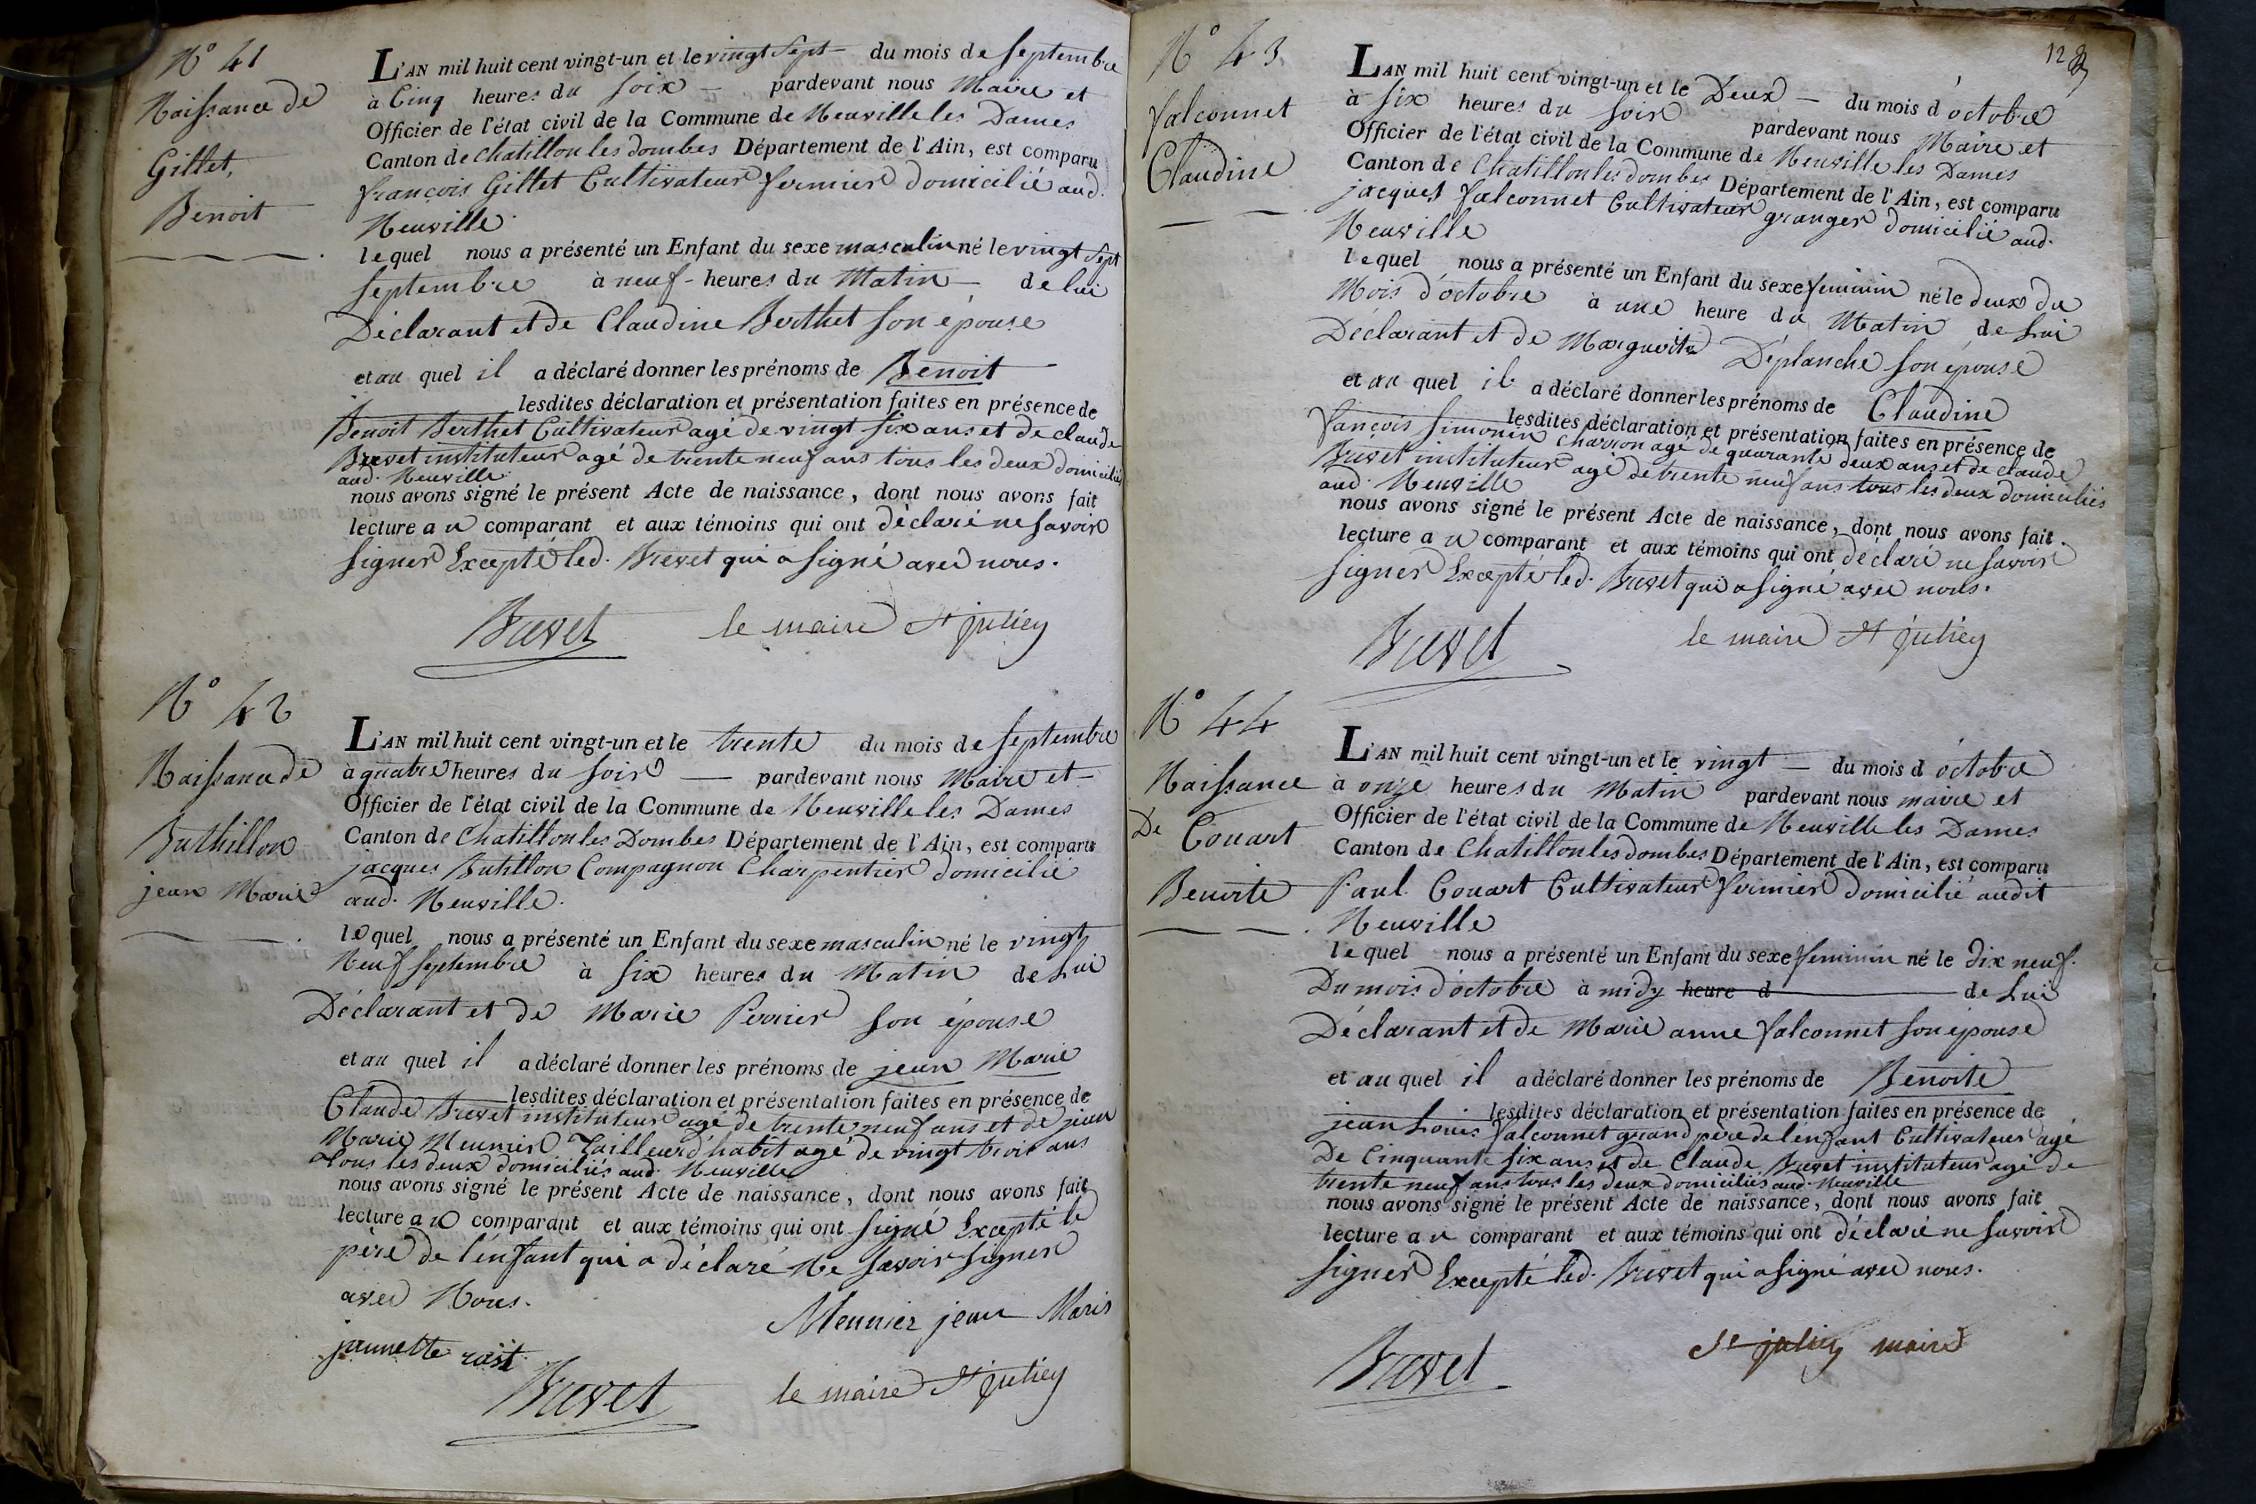 N° 41
Naissance de
Gillet,
Benoit
L'AN mil huit cent vingt-un et le vingt sept du mois de septembre
à Cinq heures du soir pardevant nous Maire et
Officier de l'état civil de la Commune de Neuville les Dames
Canton de Chatillon les dombes Département de l'Ain, est comparu
françois Gillet Cultivateur fermier domicilié aud.
Neuville.
lequel nous a présenté un Enfant du sexe masculin né le vingt sept
septembre à neuf heures du Matin de lui
Déclarant et de Claudine Berthet son épouse
et au quel il a déclaré donner les prénoms de Benoit
lesdites déclaration et présentation faites en présence de
Benoit Berthet Cultivateur agé de vingt six ans et de claude
Brevet instituteur agé de trente neuf ans tous les deux domiciliés
aud. Neuville
nous avons signé le présent Acte de naissance, dont nous avons fait
lecture au comparant et aux témoins qui ont déclaré ne savoir
signer Excepté led. Brevet qui a signé avec nous.
Brevet le maire St julien
N° 42
Naissance de
Buthillon
jean Marie
L'AN mil huit cent vingt-un et le trente du mois de septembre
à quatre heures du soir pardevant nous Maire et
Officier de l'état civil de la Commune de Neuville les Dames
Canton de Chatillon les Dombes Département de l'Ain, est comparu
jacques Butillon Compagnon Charpentier domicilié
aud. Neuville.
lequel nous a présenté un Enfant du sexe masculin né le vingt
Neuf septembre à six heures du Matin de Lui
Déclarant et de Marie Perrier son épouse
et au quel il a déclaré donner les prénoms de jean Marie
lesdites déclaration et présentation faites en présence de
Claude Brevet instituteur agé de trente neuf ans et de jean
Marie Meunier Tailleur d'habit agé de vingt trois ans
tous les deux domiciliés aud. Neuville
nous avons signé le présent Acte de naissance, dont nous avons fait
lecture au comparant et aux témoins qui ont signé Excepté le
père de l'énfant qui a déclaré Ne savoir signer
avec Nous.
Meunier jean Marie
jaunette
Brevet le maire St julien
12
N° 43
falconnet
Claudine
L'AN mil huit cent vingt-un et le Deux du mois d'octobre
à six heures du soir pardevant nous Maire et
Officier de l'état civil de la Commune de Neuville les Dames
Canton de Chatillon les dombes Département de l'Ain, est comparu
jacques falconnet Cultivateur granger domicilié aud.
Neuville
lequel nous a présenté un Enfant du sexe feminin né le deux du
Mois d'octobre à une heure du Matin de Lui
Déclarant et de Marguerite Déplanche son épouse
et au quel il a déclaré donner les prénoms de Claudine
lesdites déclaration et présentation faites en présence de
françois simonin charron agé de quarante deux ans et de claude
Brevet instituteur agé de trente neuf ans tous les deux domiciliés
aud. Neuville
nous avons signé le présent Acte de naissance, dont nous avons fait
lecture au comparant et aux témoins qui ont déclaré ne savoir
signer Excepté led. Brevet qui a signé avec nous.
Brevet le maire St julien
N° 44
Naissance
De Couart
Benoite
L'AN mil huit cent vingt-un et le vingt du mois d'octobre
à onze heures du Matin pardevant nous maire et
Officier de l'état civil de la Commune de Neuville les Dames
Canton de Chatillon les dombes Département de l'Ain, est comparu
Paul Couart Cultivateur fermier domicilié audit
Neuville
lequel nous a présenté un Enfant du sexe feminin né le dix neuf.
Du mois d'octobre à midy heure d de Lui
Déclarant et de Marie anne falconnet son épouse
et au quel il a déclaré donner les prénoms de Benoite
lesdites déclaration et présentation faites en présence de
jean Louis falconnet grand père de l'enfant Cultivateur agé
De Cinquante six ans et de Claude Brevet instituteur agé de
trente neuf ans tous les deux domiciliés aud. Neuville
nous avons signé le présent Acte de naissance, dont nous avons fait
lecture au comparant et aux témoins qui ont déclaré ne savoir
signer Excepté led. Brevet qui a signé avec nous.
Brevet St julien maire